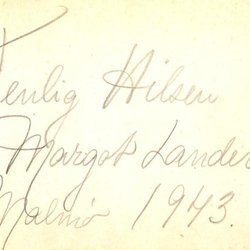 Venlig Hilsen
Margot Lander
Malmö 1943.